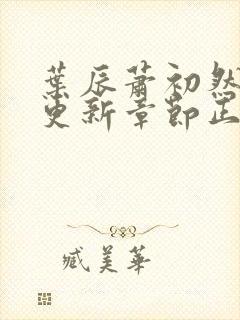 葉辰蕭初然
更新章節正
臧美華